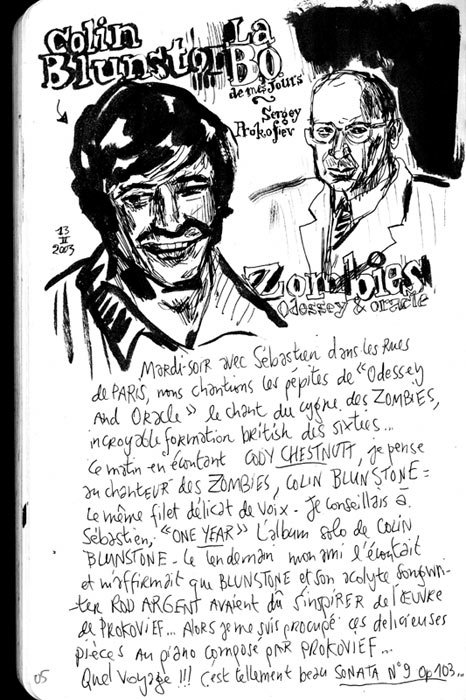 Colin
Blunston
La
BO
de mes Jours
Sergey
Prokofiev
13
II
2003
Zombies
Odessey & oracle
Mardi-soir avec Sébastien dans les Rues
de PARIS, nous chantions les pépites de "Odessey
And Oracle" le chant du cygne des ZOMBIES,
incroyable formation british des sixties...
Ce matin en écoutant CODY CHESTNUTT, je pense
au chanteur des ZOMBIES, COLIN BLUNSTONE =
le même filet délicat de voix - Je conseillais à
Sébastien, "ONE YEAR" L'album solo de COLIN
BLUNSTONE - Le lendemain mon ami l'écoutait
et m'affirmait que BLUNSTONE et son acolyte songwri-
ter ROD ARGENT avaient dû s'inspirer de l'ŒUVRE
de PROKOVIEF... Alors je me suis procupé ces delicieuses
pièces au piano composé par PROKOVIEF...
Quel voyage !!! C'est tellement beau SONATA N°9 Op 103...
05